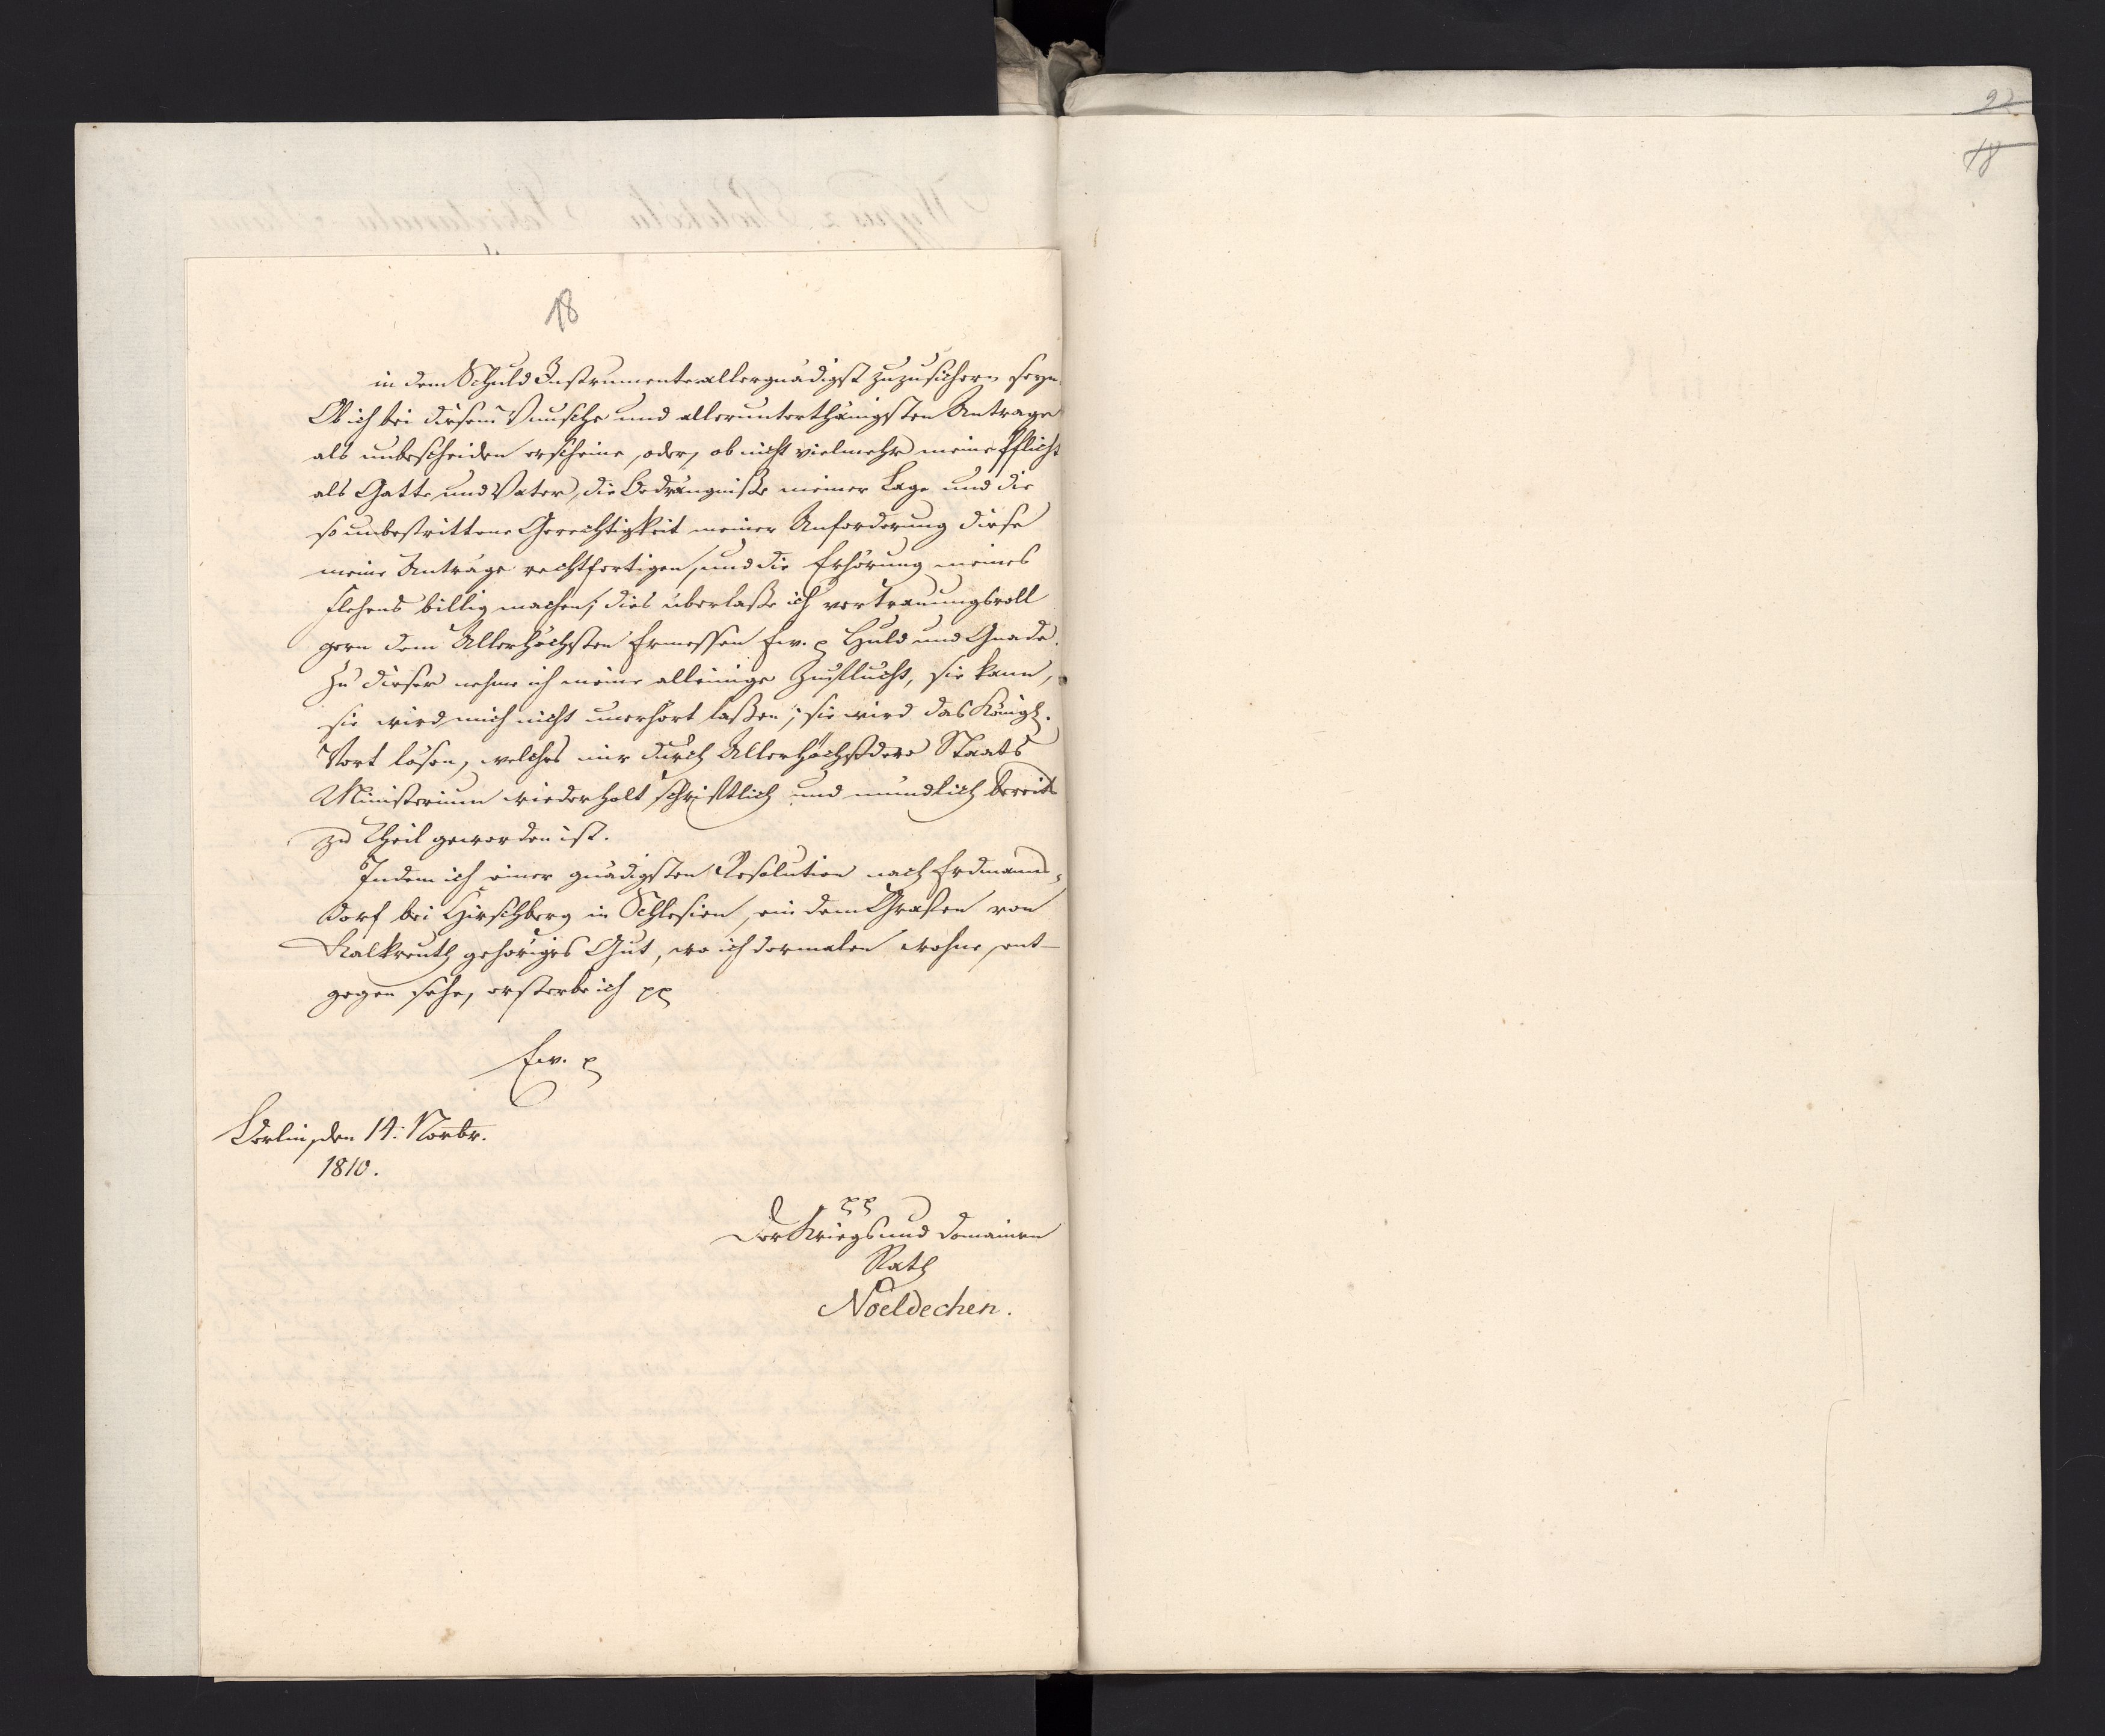 92
18
18
in dem Schuld Instrumente allergnädigst zuzusichern seyn.
Ob ich bei diesem Wunsche und allerunterthänigsten Antrage
als unbescheiden erscheine, oder, ob nicht vielmehr meine Pflicht
als Gatte und Vater, die Bedrängniße meiner Lage und die
so unbestrittene Gerechtigkeit meiner Anforderung diese
meine Anträge rechtfertigen, und die Erhörung meines
Flehens billig machen; dies überlaße ich vertrauungsvoll
gern dem Allerhöchsten Ermessen Ew. p Huld und Gnade.
Zu dieser nehme ich meine alleinige Zuflucht, sie kann,
sie wird mich nicht unerhört laßen; sie wird das Königl.
Wort lösen, welches mir durch Allerhöchstdero Staats
Ministerium wiederholt schriftlich und mündlich bereits
zu Theil geworden ist.
Indem ich einer gnädigsten Resolution nach Erdmanns-
dorf bei Hirschberg in Schlesien, ein dem Grafen von
Kalkreuth gehöriges Gut, wo ich dermalen wohne, ent-
gegen sehe, ersterbe ich pp
Ew. p
Berlin, den 14. Novbr.
1810.
pp
Der Kriegs und Domainen
Rath
Noeldechen.